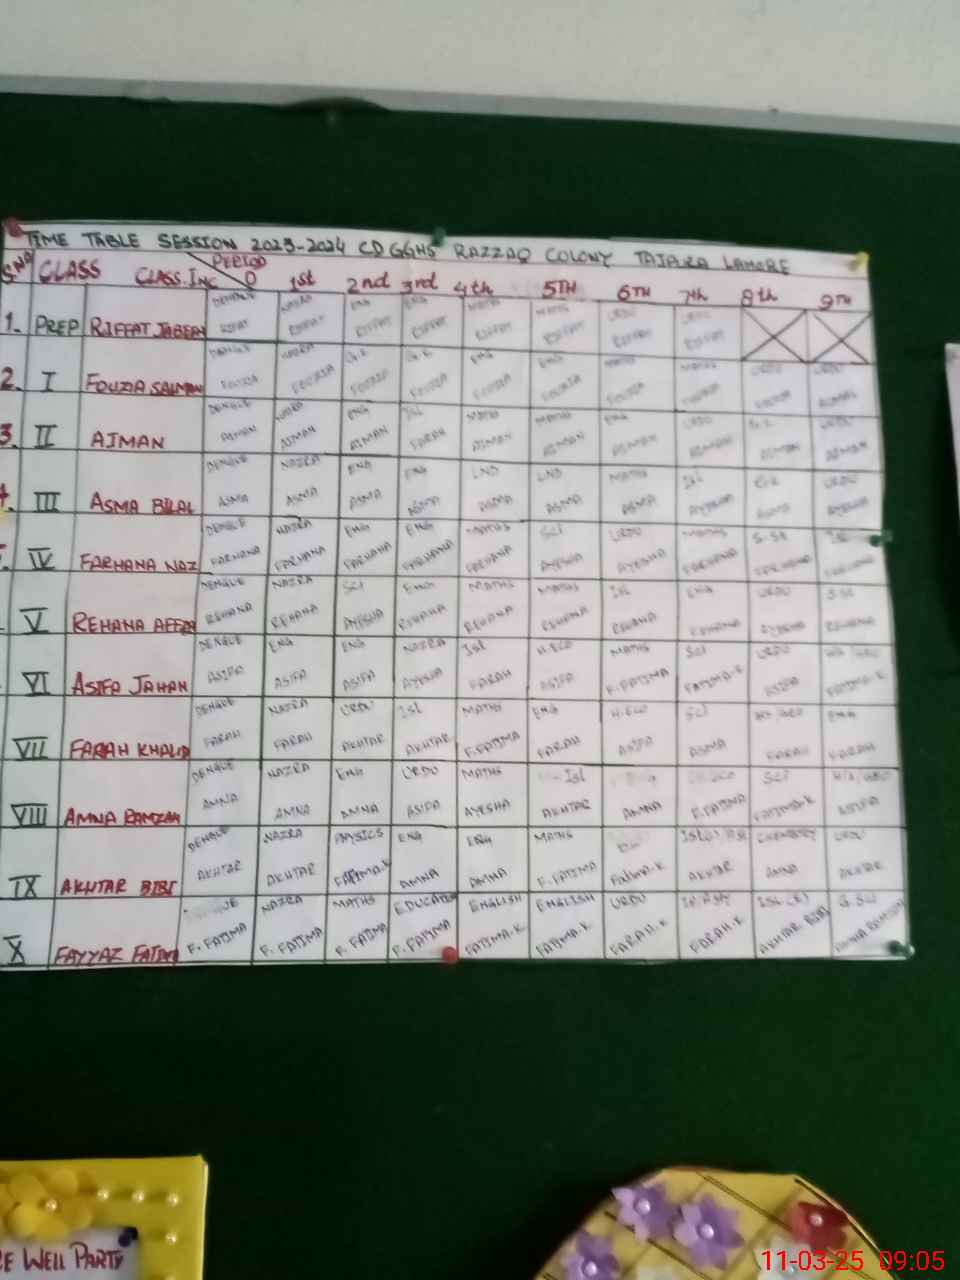 TIME TABLE SESSION 2023-2024 CDGGHS RAZZAQ COLONY TAJPURA LAHORE
S.NO CLASS CLASS.INC PERIOD 0 1st 2nd 3rd 4th 5TH 6TH 7th 8th 9TH
DENGUE NAZRA ENG ENG MATHS MATHS URDU
1. PREP RIFFAT JABEEN RIFFAT RIFFAT RIFFAT RIFFAT RIFFAT RIFFAT RIFFAT RIFFAT
DENGUE NAZRA G.K G.K ENG ENG MATHS MATHS URDU URDU
2. I FOUZIA SALMAN FOUZIA FOUZIA FOUZIA FOUZIA FOUZIA FOUZIA FOUZIA FOUZIA FOUZIA
DENGUE NAZRA ENG Isl MATHS MATHS ENG URDU URDU
3. II AJMAN AJMAN AJMAN AJMAN FARAH AJMAN AJMAN AJMAN AJMAN AJMAN AJMAN
DENGUE NAZRA ENG ENG MATHS Isl G.K URDU
III ASMA BILAL ASMA ASMA ASMA ASMA ASMA ASMA ASMA AYESHA ASMA AYESHA
DENGUE NAZRA ENG ENG MATHS SCI URDU MATHS S.St Isl
IV FARHANA NAZ FARHANA FARHANA FARHANA FARHANA FARHANA AYESHA AYESHA FARHANA FARHANA FARHANA
DENGUE NAZRA SCI ENG MATHS MATHS Isl ENG URDU S.St
V REHANA AFZAL REHANA REHANA AYESHA REHANA REHANA REHANA REHANA REHANA AYESHA REHANA
DENGUE ENG ENG NAZRA Isl H.ECO MATHS SCI URDU HIS/GEO
VI ASIFA JAHAN ASIFA ASIFA ASIFA AYESHA FARAH ASIFA F.FATIMA FATIMA-K ASIFA FATIMA-K
DENGUE NAZRA URDU Isl MATHS ENG H.ECO SCI HIS/GEO ENG
VII FARAH KHALID FARAH FARAH AKHTAR AKHTAR F.FATIMA FARAH ASIFA ASMA FARAH FARAH
DENGUE NAZRA ENG URDU MATHS Isl SCI HIS/GEO
VIII AMNA RAMZAN AMNA AMNA AMNA ASIFA AYESHA AKHTAR AMNA F.FATIMA FATIMA-K ASIFA
DENGUE NAZRA PHYSICS ENG ENG MATHS CHEMISTRY URDU
IX AKHTAR BIBI AKHTAR AKHTAR FATIMA.K AMNA AMNA F.FATIMA FATIMA-K AKHTAR AMNA AKHTAR
NAZRA MATHS EDUCATION ENGLISH ENGLISH URDU ISL(E) G.SCI
X FAYYAZ FATIMA F.FATIMA F.FATIMA F.FATIMA F.FATIMA FATIMA-K FATIMA.K FARAH.K FARAH.K AKHTAR BIBI AMNA RAMZAN
RE WELL PARTY
11-03-25 09:05